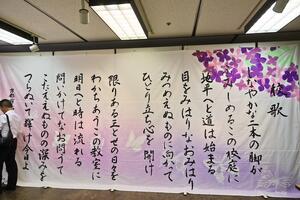 校歌
しなやかな二本の脚が
しめるこの校庭に
地平へと道は始まる
目をみはりなおみはり
みつめえぬものに向かって
ひとり立ち心を開け
限りある三とせの日々を
わかちあうこの教室に
明日へと時は流れる
問いかけてなお問うて
こたええぬものの深みを
つらぬいて輝け今日よ